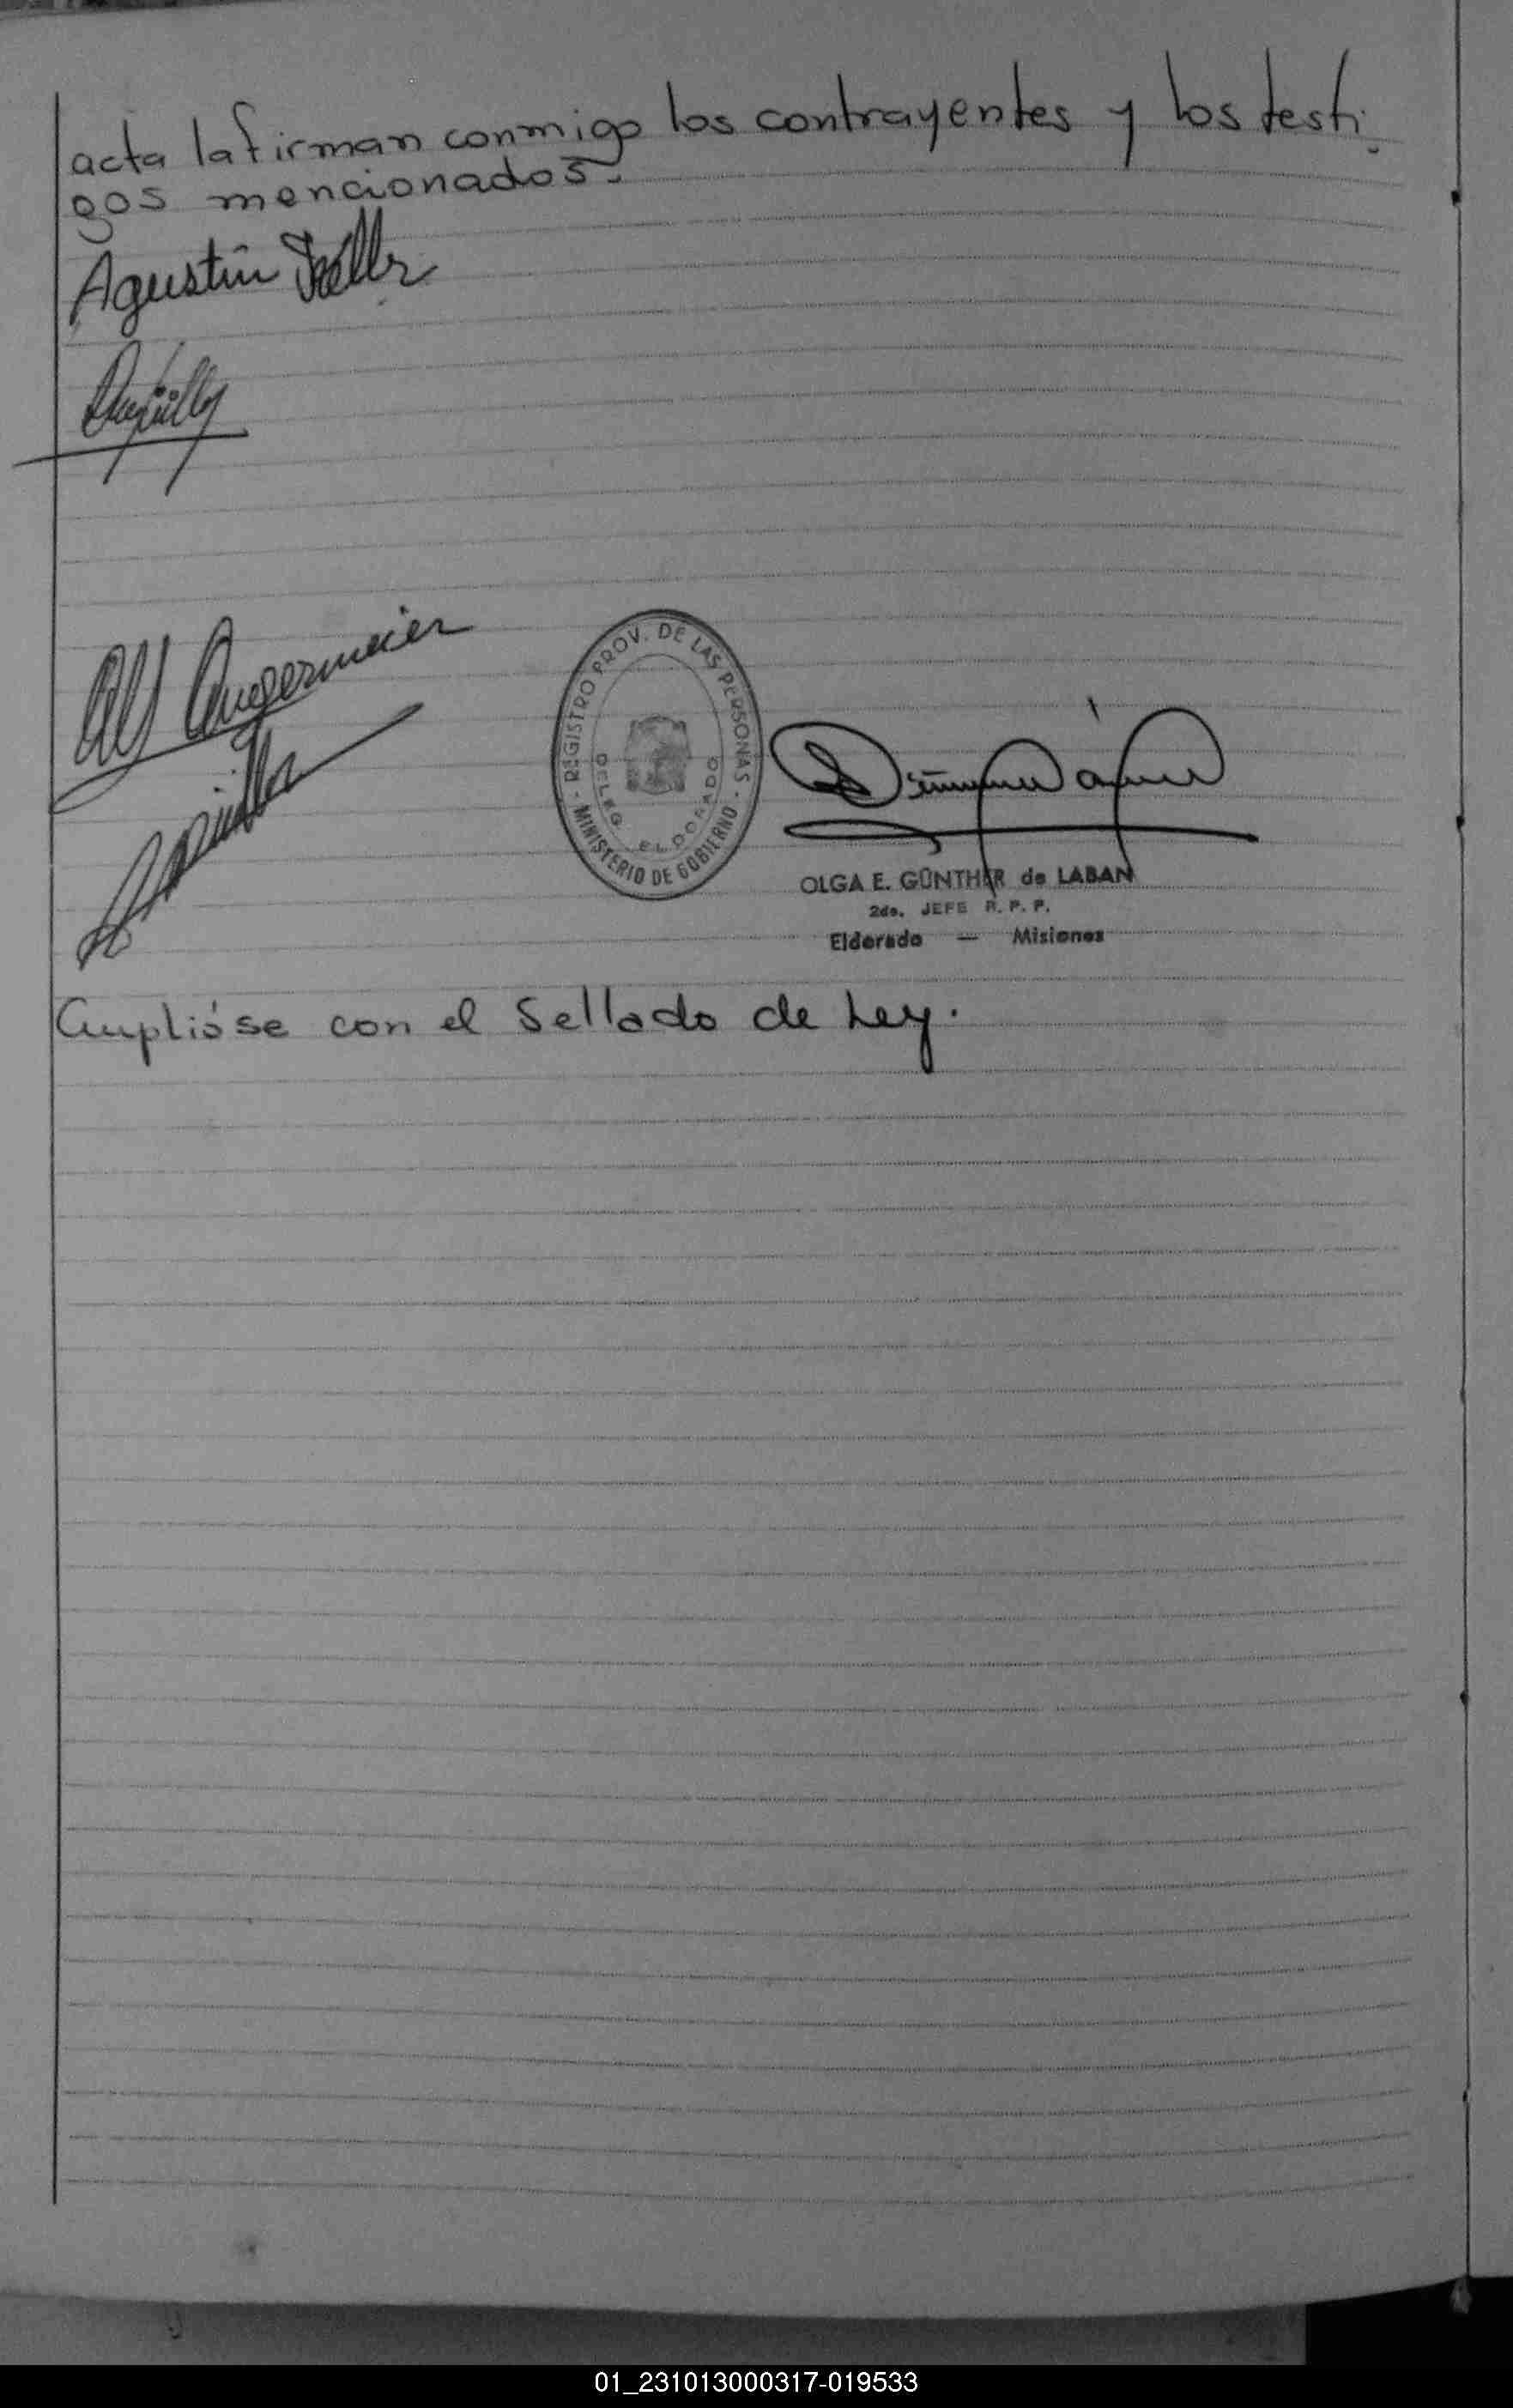 acta la firman conmigo los contrayentes y los testi-
gos mencionados.-
Agustín
Alf Angermeier
REGISTRO PROV. DE LAS PERSONAS
DELEG. ELDORADO
- MINISTERIO DE GOBIERNO -
OLGA E. GÜNTHER de LABAN
2do. JEFE R. P. P.
Eldorado — Misiones
Cumplióse con el Sellado de Ley.
01_231013000317-019533